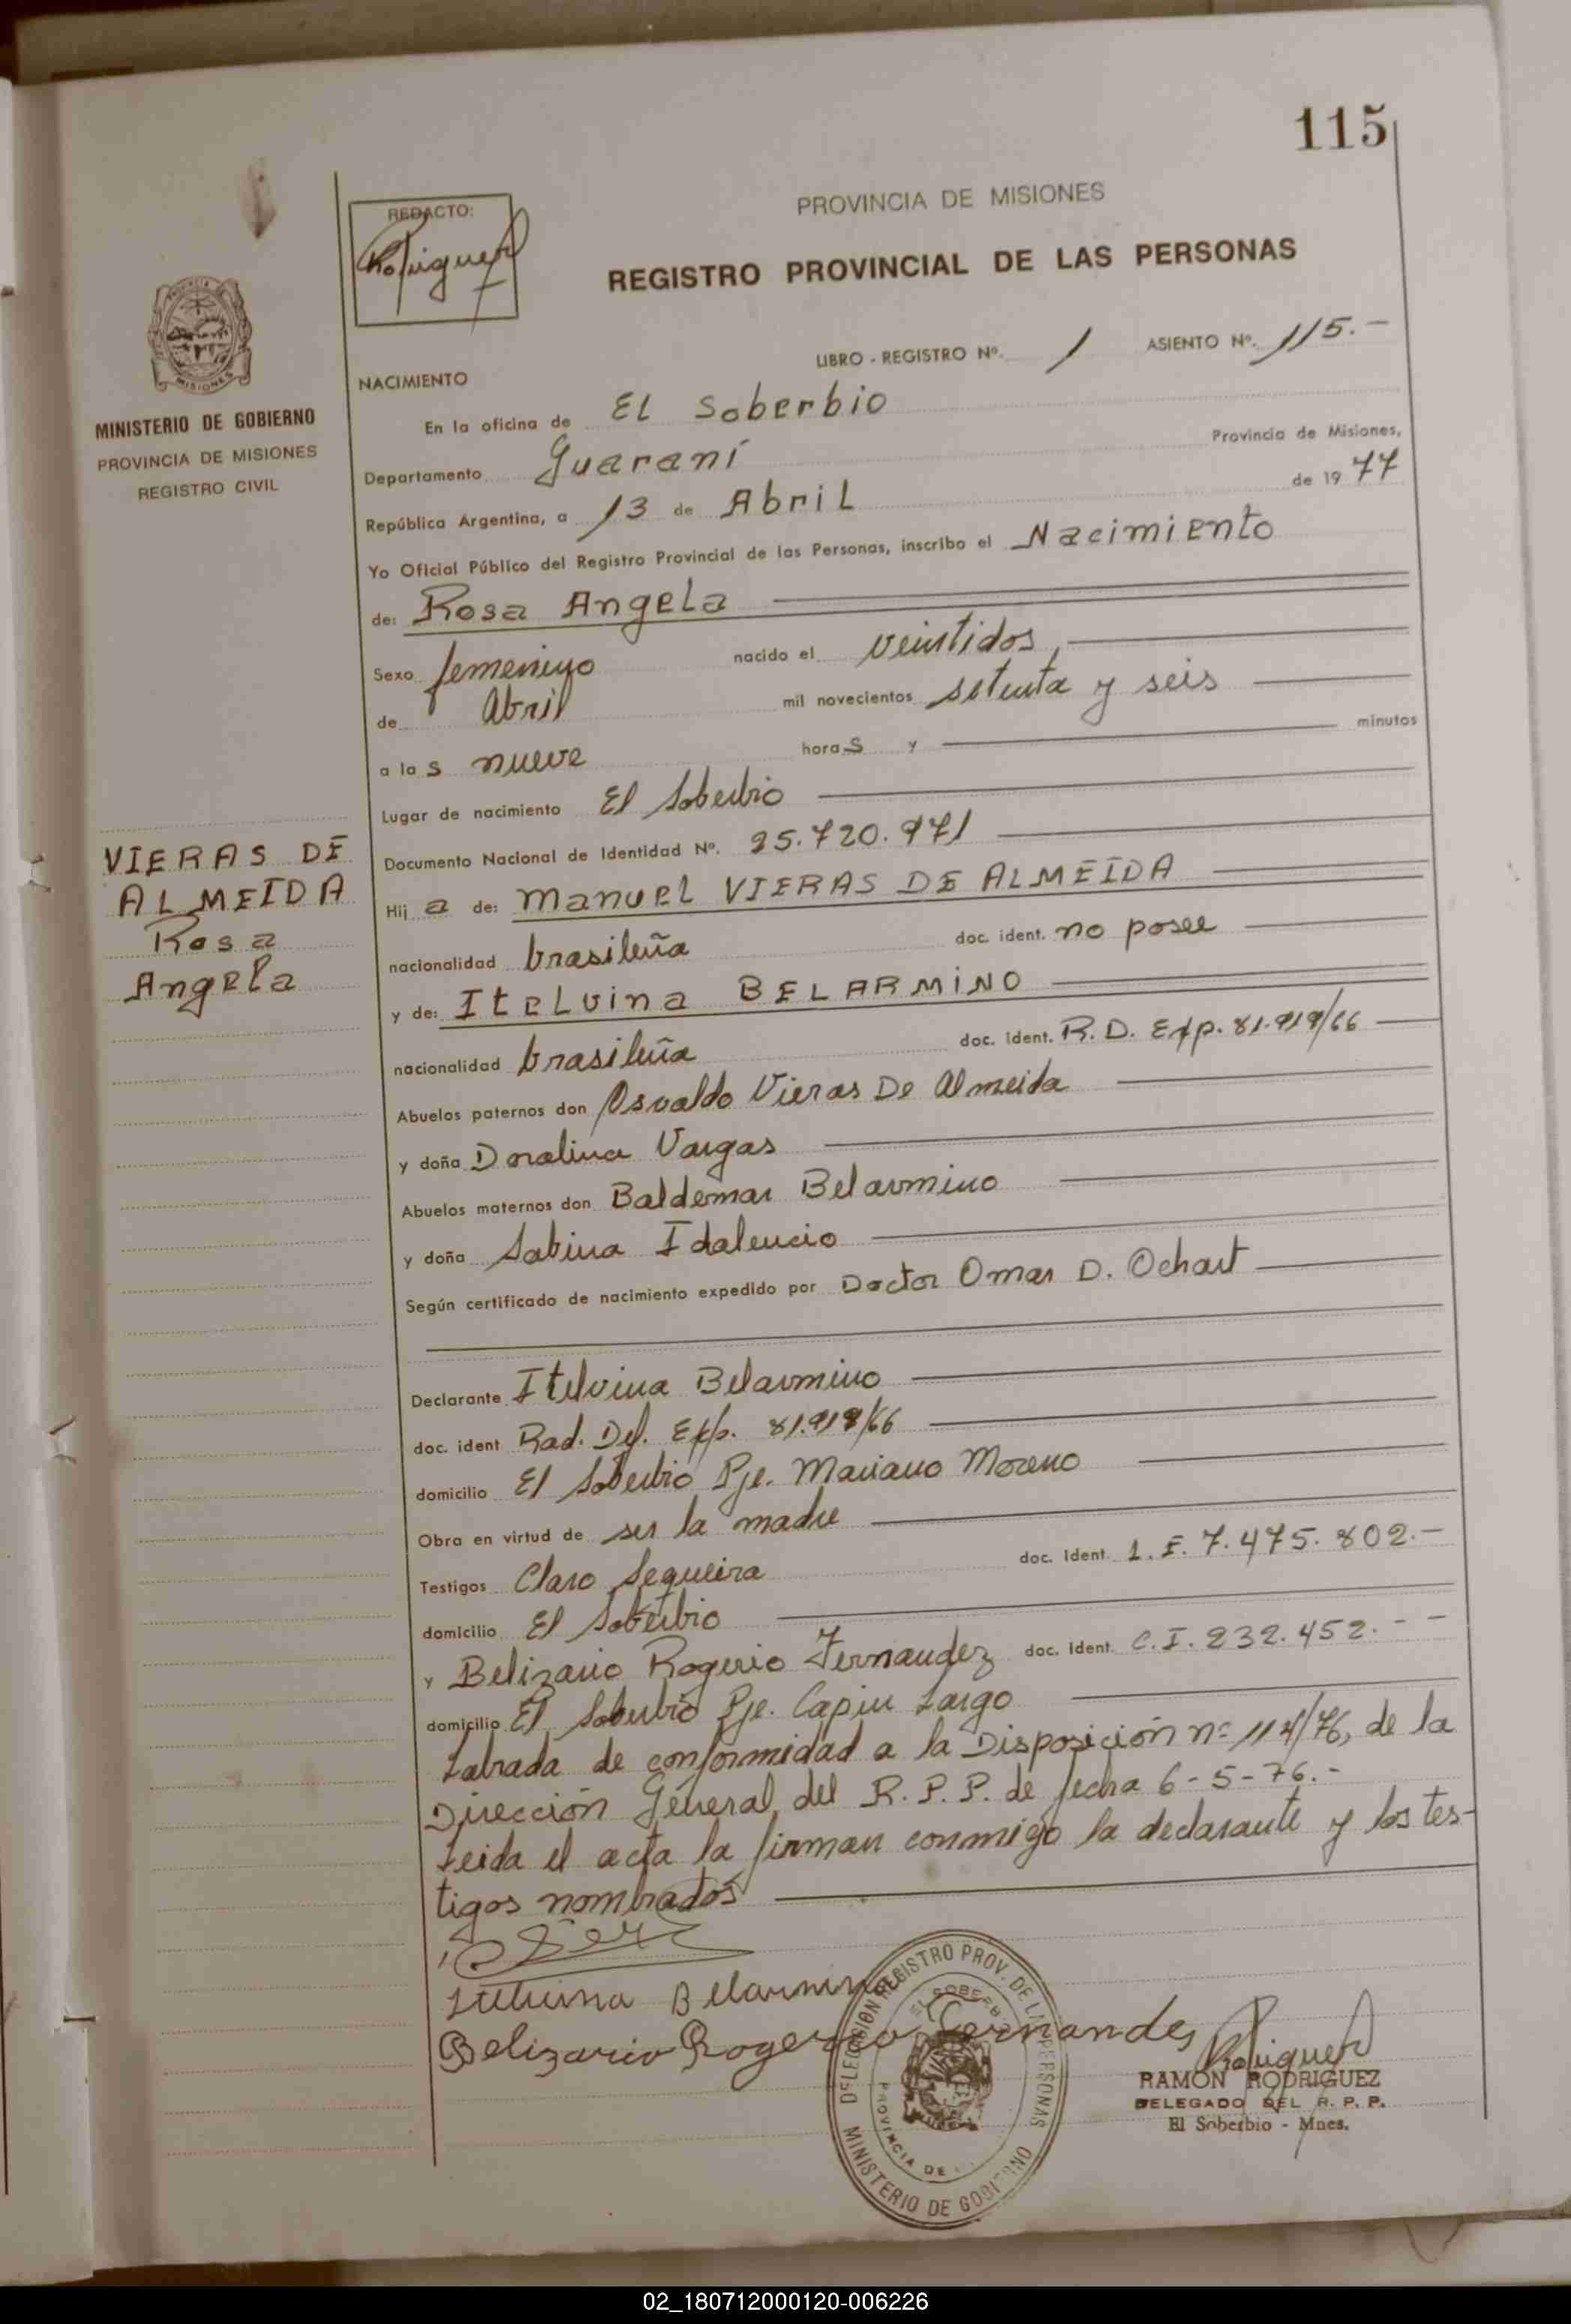 115
PROVINCIA DE MISIONES
REDACTO:
Rodriguez
REGISTRO PROVINCIAL DE LAS PERSONAS
LIBRO - REGISTRO Nº. 1 ASIENTO Nº. 115.-
MISIONES
MINISTERIO DE GOBIERNO
PROVINCIA DE MISIONES
REGISTRO CIVIL
NACIMIENTO
En la oficina de El Soberbio
Departamento Guaraní Provincia de Misiones,
República Argentina, a 13 de Abril de 1977
Yo Oficial Público del Registro Provincial de las Personas, inscribo el Nacimiento
de: Rosa Angela
Sexo femenino nacido el veintidos,
de Abril mil novecientos setenta y seis
a las nueve horas y minutos
Lugar de nacimiento El Soberbio
Documento Nacional de Identidad Nº. 25.720.971
VIERAS DE
ALMEIDA
Rosa
Angela
Hija de: Manuel VIERAS DE ALMEIDA
nacionalidad brasileña doc. ident. no posee
y de: Itelvina BELARMINO
nacionalidad brasileña doc. ident. R. D. Exp. 81.919/66
Abuelos paternos don Osvaldo Vieras De Almeida
y doña Doralina Vargas
Abuelos maternos don Baldemar Belarmino
y doña Sabina Idalencio
Según certificado de nacimiento expedido por Doctor Omar D. Ochart
Declarante Itelvina Belarmino
doc. ident Rad. Def. Exp. 81.919/66
domicilio El Soberbio Pje. Mariano Moreno
Obra en virtud de ser la madre
Testigos Claro Sequeira doc. Ident. L.E. 7.475.802.-
domicilio El Soberbio
y Belizario Rogerio Fernandez doc. Ident. C.I. 232.452.--
domicilio El Soberbio Pje. Capiu Largo
Labrada de conformidad a la Disposición nº 114/76, de la
Dirección General del R.P.P. de fecha 6-5-76.-
Leida el acta la firman conmigo la declarante y los tes-
tigos nombrados
Belarmina
Belizario Rogerio Fernandes
Rodriguez
DELEGACION REGISTRO PROV. DE LAS PERSONAS
EL SOBERBIO
PROVINCIA DE
MINISTERIO DE GOBIERNO
RAMON RODRIGUEZ
DELEGADO DEL R. P. P.
El Soberbio - Mnes.
02_180712000120-006226